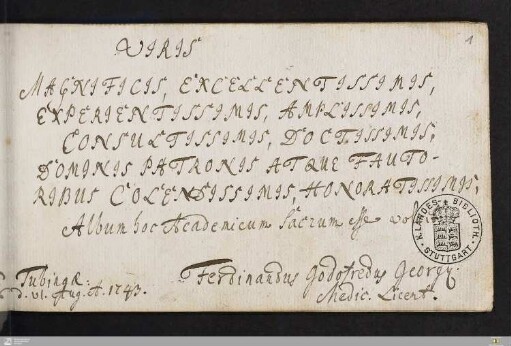 1
VIRIS
MAGNIFICIS, EXCELLENTISSIMIS,
EXPERIENTISSIMIS, AMPLISSIMIS,
CONSULTISSIMIS, DOCTISSIMIS,
DOMINIS PATRONIS ATQUE FAUTO-
RIBUS COLENDISSIMIS, HONORATISSIMIS,
Album hoc Academicum Sacrum esse
K. LANDES-BIBLIOTH. STUTTGART.
Tubingæ. Ferdinandus Godofredus Georgy.
d. VI. Aug. A. 1743. Medic. Licent.